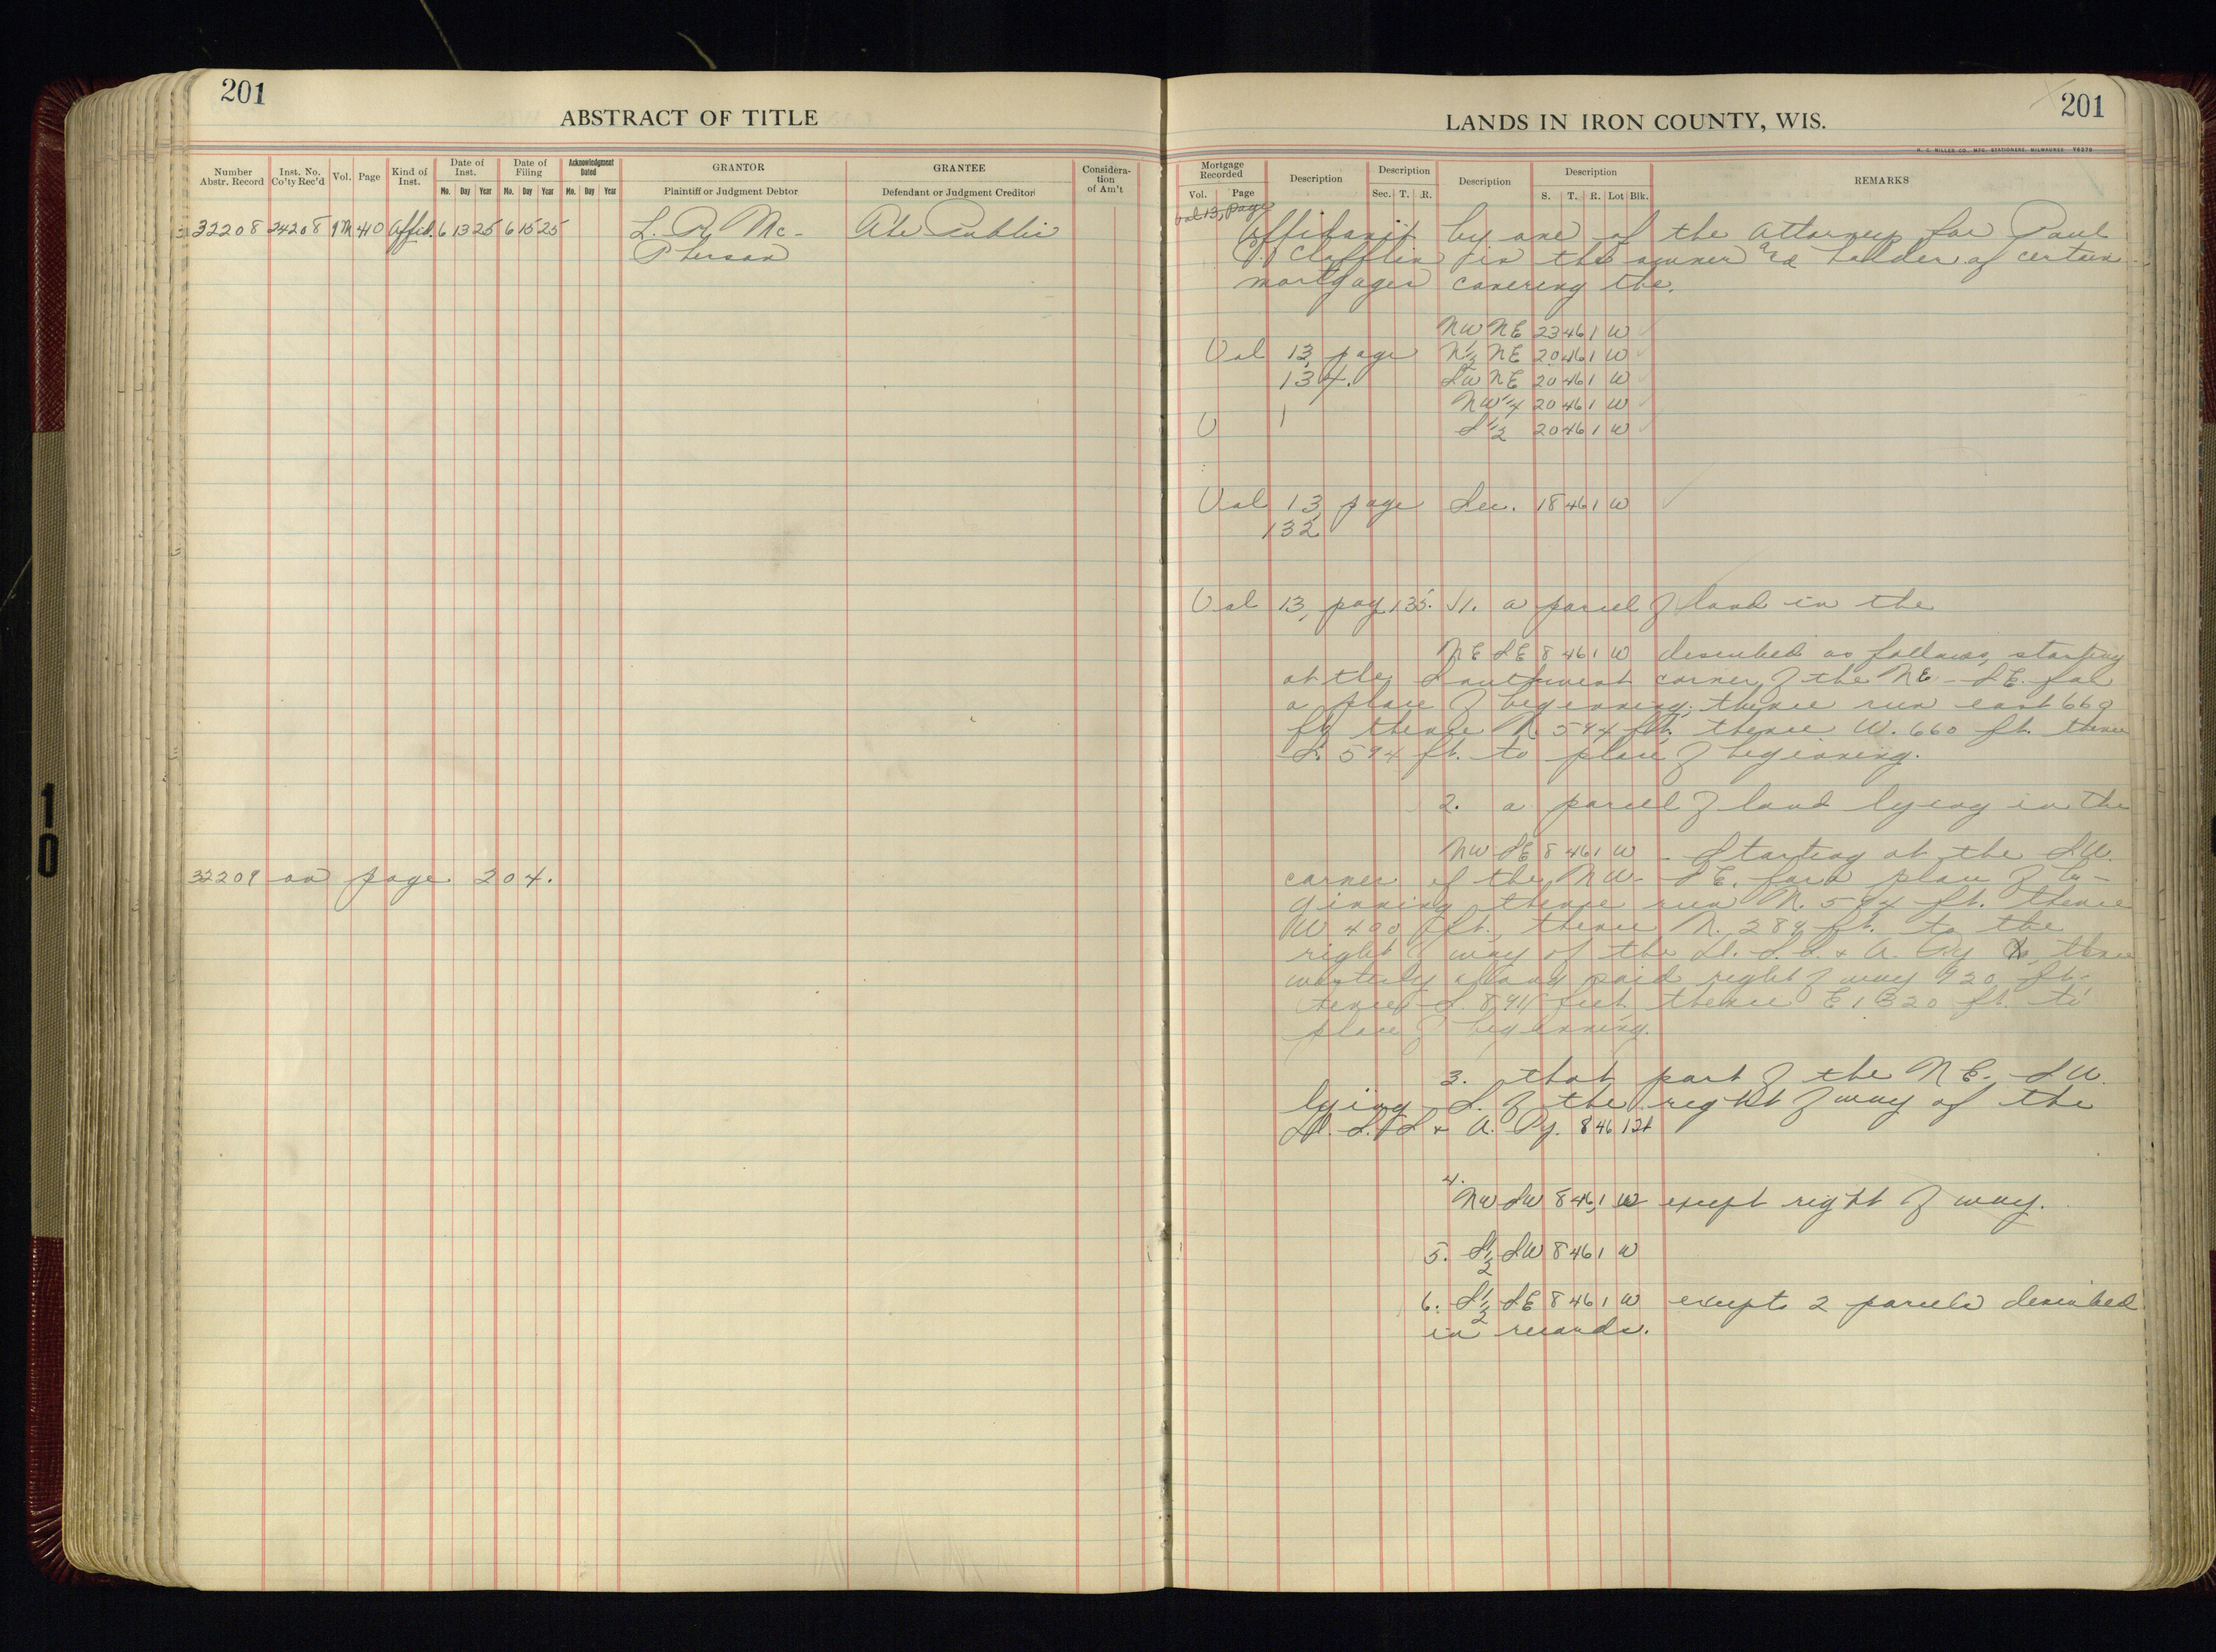 201
ABSTRACT OF TITLE
Number Abstr. Record | Inst. No. Co'ty Rec'd | Vol. | Page | Kind of Inst. | Date of Inst. Mo. Day Year | Date of Filing Mo. Day Year | Acknowledgment Dated Mo. Day Year | GRANTOR Plaintiff or Judgment Debtor | GRANTEE Defendant or Judgment Creditor | Consideration of Am't
32208 24208 9M 410 Affid. 6 13 25 6 15 25 L. R. Mc- The Public
Pherson
32209 on page 204.
10
201
LANDS IN IRON COUNTY, WIS.
H. C. MILLER CO., MFG. STATIONERS, MILWAUKEE
Mortgage Recorded Vol. Page | Description | Description Sec. T. R. | Description | Description S. T. R. Lot Blk. | REMARKS
Vol 13, Page
Affidavit by one of the attorneys for Paul
Clafflin is the owner and holder of certain
mortgages covering the.
NW NE 23 46 1 W
Vol 13, page N½ NE 20 46 1 W
134. SW NE 20 46 1 W
NW¼ 20 46 1 W
S½ 20 46 1 W
Vol 13, page Sec. 18 46 1 W
132
Vol 13, pag 135. 1. a parcel of land in the
NE SE 8 46 1 W described as follows, starting
at the Southwest corner of the NE-SE. for
a place of beginning; thence run east 660
ft thence N. 594 ft. thence W. 660 ft. thence
S. 594 ft. to place of beginning.
2. a parcel of land lying in the
NW SE 8 46 1 W - Starting at the SW.
corner of the NW- SE. for a place of be-
ginning thence run N. 594 ft. thence
W 400 ft., thence N. 289 ft. to the
right of way of the D. S. S. & A. Ry Co, thence
westerly along said right of way 920 ft.
thence S. 891 feet, thence E 1320 ft. to
place of beginning.
3. that part of the NE. SW.
lying S. of the right of way of the
D. S. S. & A. Ry. 8 46 1 W
4.
NW SW 8 46 1 W except right of way.
5. S½ SW 8 46 1 W
6. S½ SE 8 46 1 W except 2 parcels described
in records.